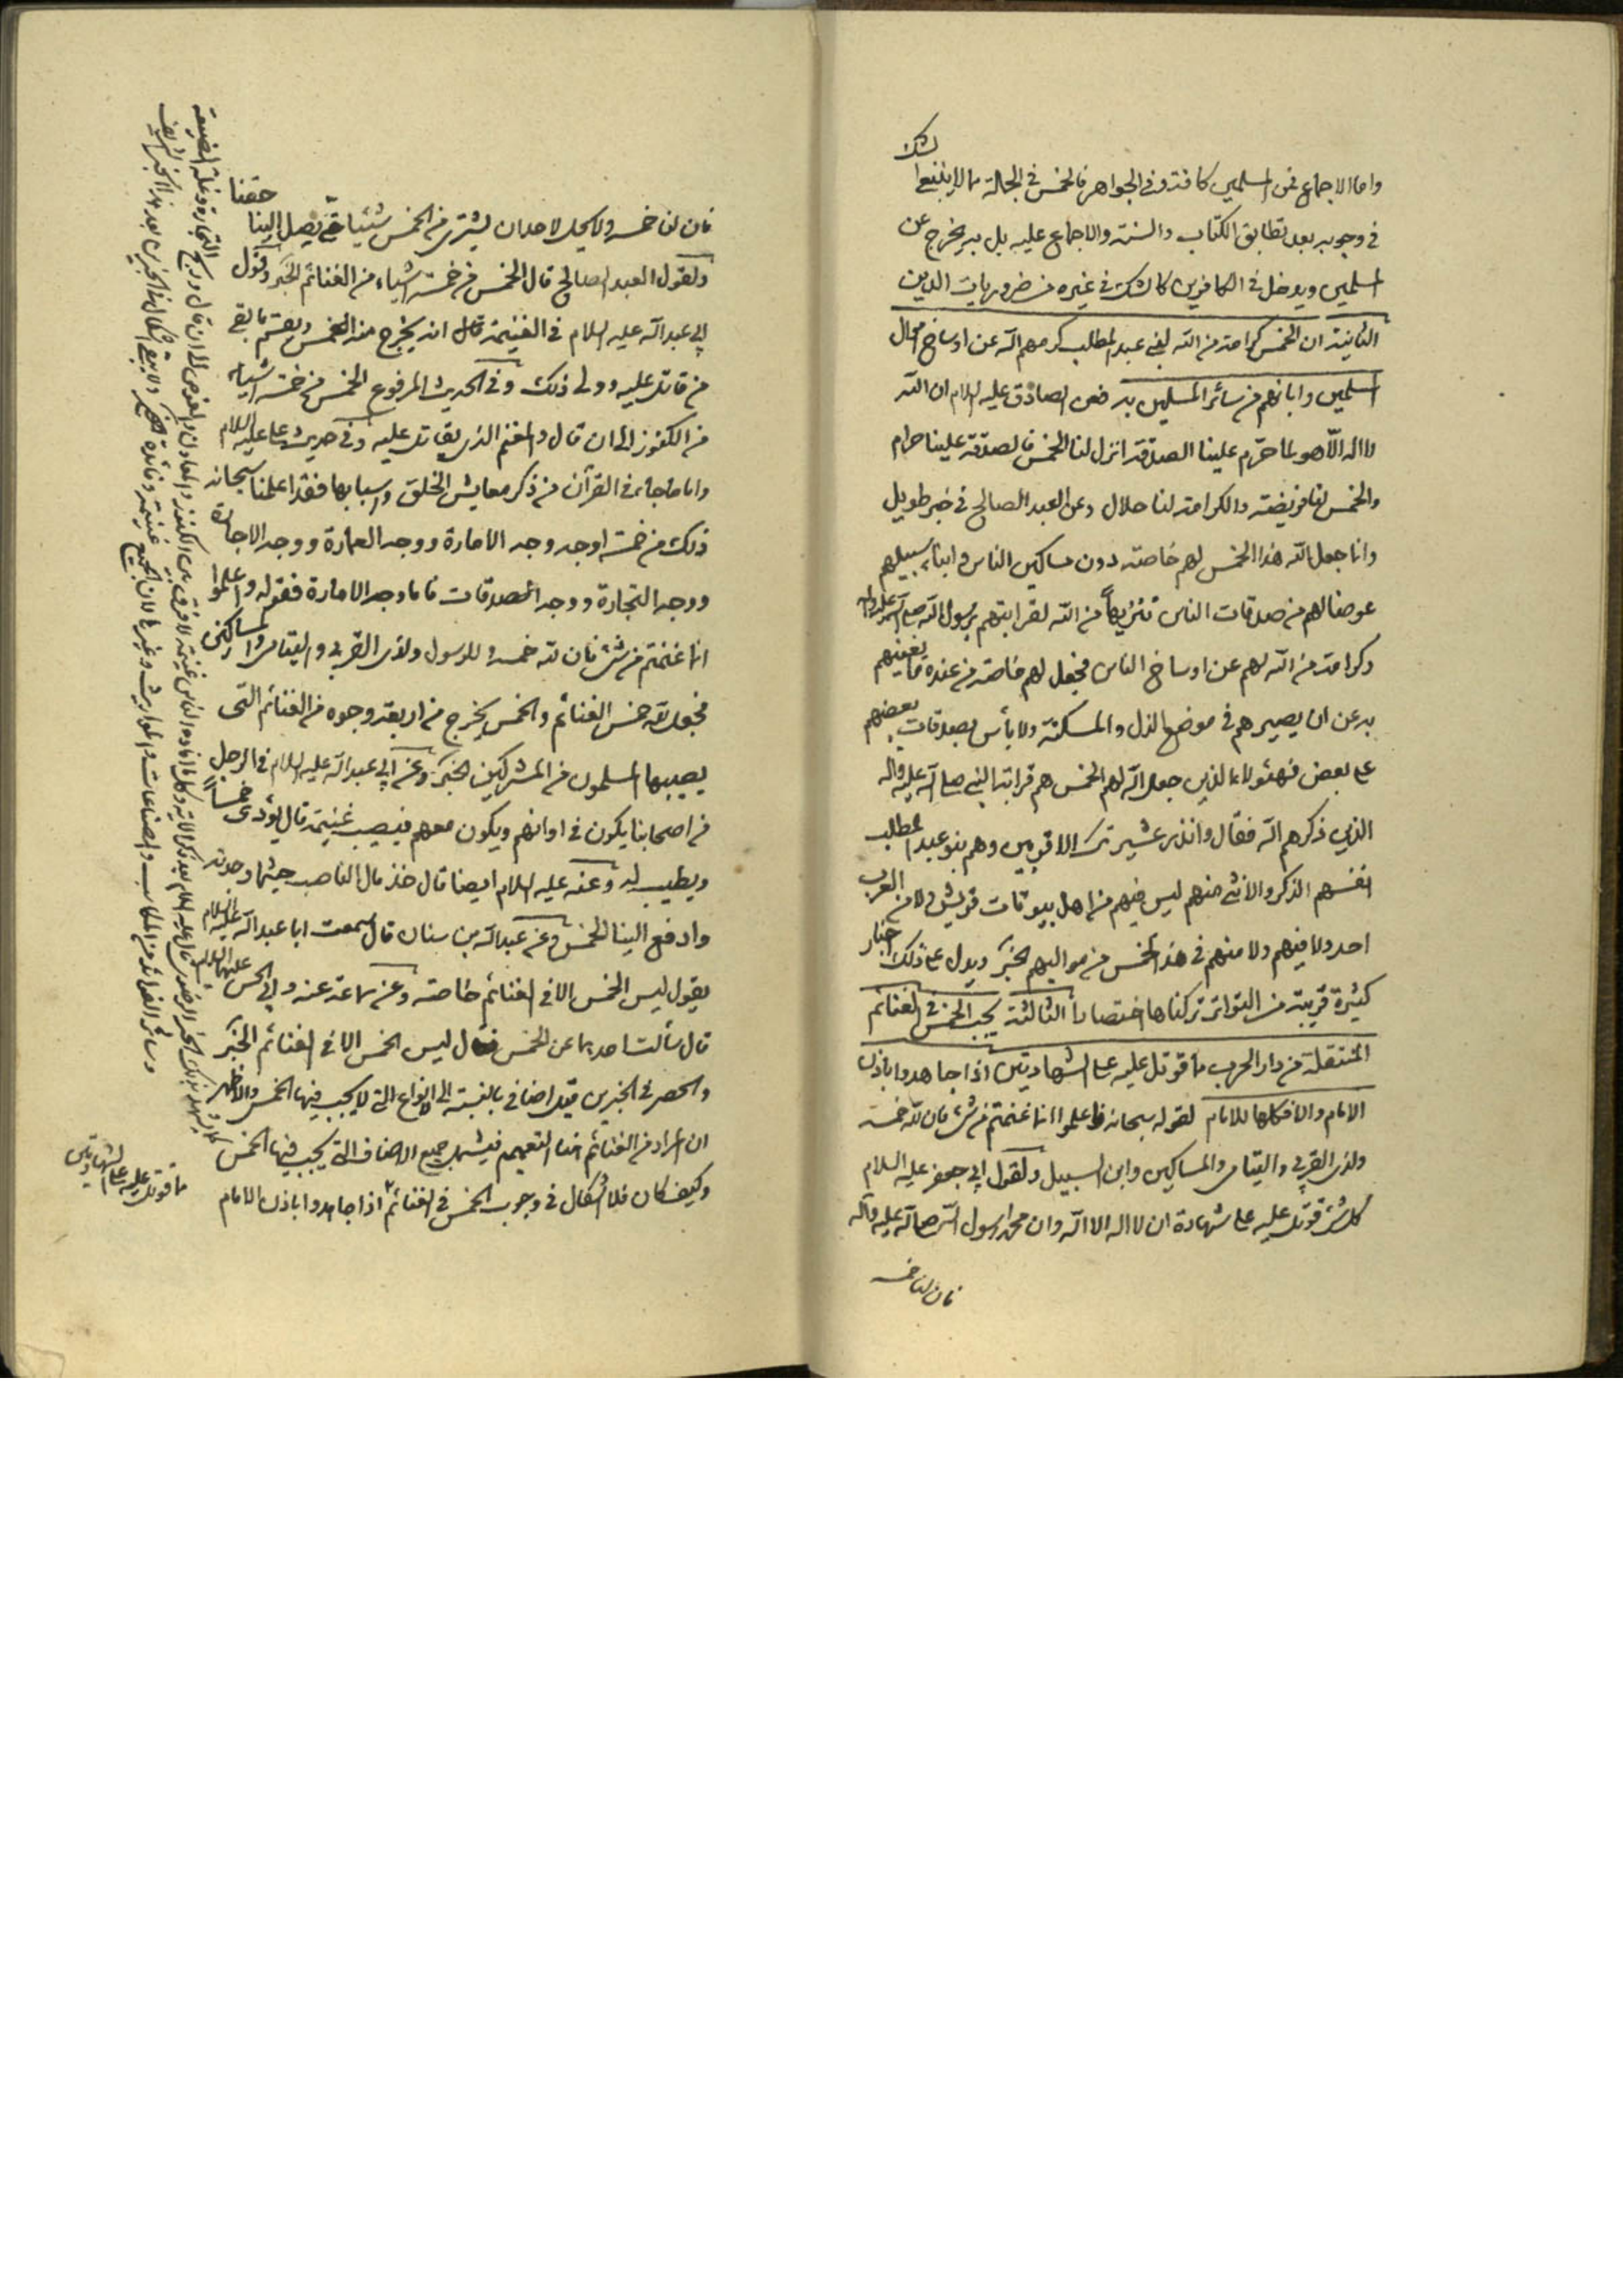 واما الاجماع فمن المسلمين كافة وفي الجواهر فالخمس في الجملة مما لا ينبغي الشك
في وجوبه بعد تطابق الكتاب والسنة والاجماع عليه بل به يخرج عن
المسلمين ويدخل في الكافرين كالشك في غيره من ضروريات الدين
الثانية ان الخمس كرامة من الله لبني عبد المطلب كرمهم الله عن اوساخ اموال
المسلمين وابانهم من سائر المسلمين به فعن الصادق عليه السلام ان الله
لا اله الا هو لما حرم علينا الصدقة انزل لنا الخمس فالصدقة علينا حرام
والخمس لنا فريضة والكرامة لنا حلال وعن العبد الصالح في خبر طويل
وانما جعل الله هذا الخمس لهم خاصة دون مساكين الناس وابناء سبيلهم
عوضا لهم من صدقات الناس تنزيها من الله لقرابتهم برسول الله صلى الله عليه واله
وكرامة من الله لهم عن اوساخ الناس فجعل لهم خاصة من عنده ما يغنيهم
به عن ان يصيرهم في موضع الذل والمسكنة ولا بأس بصدقات بعضهم
على بعض فهؤلاء الذين جعل الله لهم الخمس هم قرابة النبي صلى الله عليه واله
الذين ذكرهم الله فقال وانذر عشيرتك الاقربين وهم بنو عبد المطلب
انفسهم الذكر والانثى منهم ليس فيهم من اهل بيوتات قريش ولا من العرب
احد ولا فيهم ولا منهم في هذا الخمس من مواليهم الخبر ويدل على ذلك اخبار
كثيرة قريبة من التواتر تركناها اختصارا الثالثة يجب الخمس في الغنائم
المنتقلة من دار الحرب ما قوتل عليه على الشهادتين اذا جاهدوا باذن
الامام والا فكلها للامام لقوله سبحانه واعلموا انما غنمتم من شئ فان لله خمسه
ولذى القربى واليتامى والمساكين وابن السبيل ولقول ابي جعفر عليه السلام
كل شئ قوتل عليه على شهادة ان لا اله الا الله وان محمدا رسول الله صلى الله عليه وآله
فان لنا خمسه
فان لنا خمسه ولا يحل لاحد ان يشترى من الخمس شيئا حتى يصل الينا حقنا
ولقول العبد الصالح قال الخمس في خمسة اشياء من الغنائم الخبر وقول
ابي عبد الله عليه السلام في الغنيمة قال انه يخرج منه الخمس ويقسم ما بقي
من قاتل عليه وولى ذلك وفي الحديث المرفوع الخمس من خمسة اشياء
من الكنوز الى ان قال والمغنم الذى يقاتل عليه وفي حديث على عليه السلام
واما ما جاء في القرآن من ذكر معايش الخلق واسبابها فقد اعلمنا سبحانه
ذلك من خمسة اوجه وجه الامارة ووجه العمارة ووجه الاجارة
ووجه التجارة ووجه الصدقات فاما وجه الامارة فقوله واعلموا
انما غنمتم من شئ فان لله خمسه وللرسول ولذى القربى واليتامى والمساكين
فجعل لله خمس الغنائم والخمس يخرج من اربعة وجوه من الغنائم التى
يصيبها المسلمون من المشركين الخبر وعن ابي عبد الله عليه السلام في الرجل
من اصحابنا يكون في اوانهم ويكون معهم فيصيب غنيمة قال يؤدى خمسا
ويطيب له وعنه عليه السلام ايضا قال خذ مال الناصب حيثما وجدته
وادفع الينا الخمس وعن عبد الله بن سنان قال سمعت ابا عبد الله عليه السلام
يقول ليس الخمس الا في الغنائم خاصة وعن سماعة عنه وابي الحسن عليهما السلام
قال سألت احدهما عن الخمس فقال ليس الخمس الا في الغنائم الخبر
والحصر في الخبرين قيل اضافي بالنسبة الى الانواع التي لا يجب فيها الخمس والاظهر
ان المراد من الغنائم هنا التعميم فيشمل جميع الاصناف التي يجب فيها الخمس
وكيف كان فلا اشكال في وجوب الخمس في الغنائم اذا جاهدوا باذن الامام
ما قوتل عليه على الشهادتين